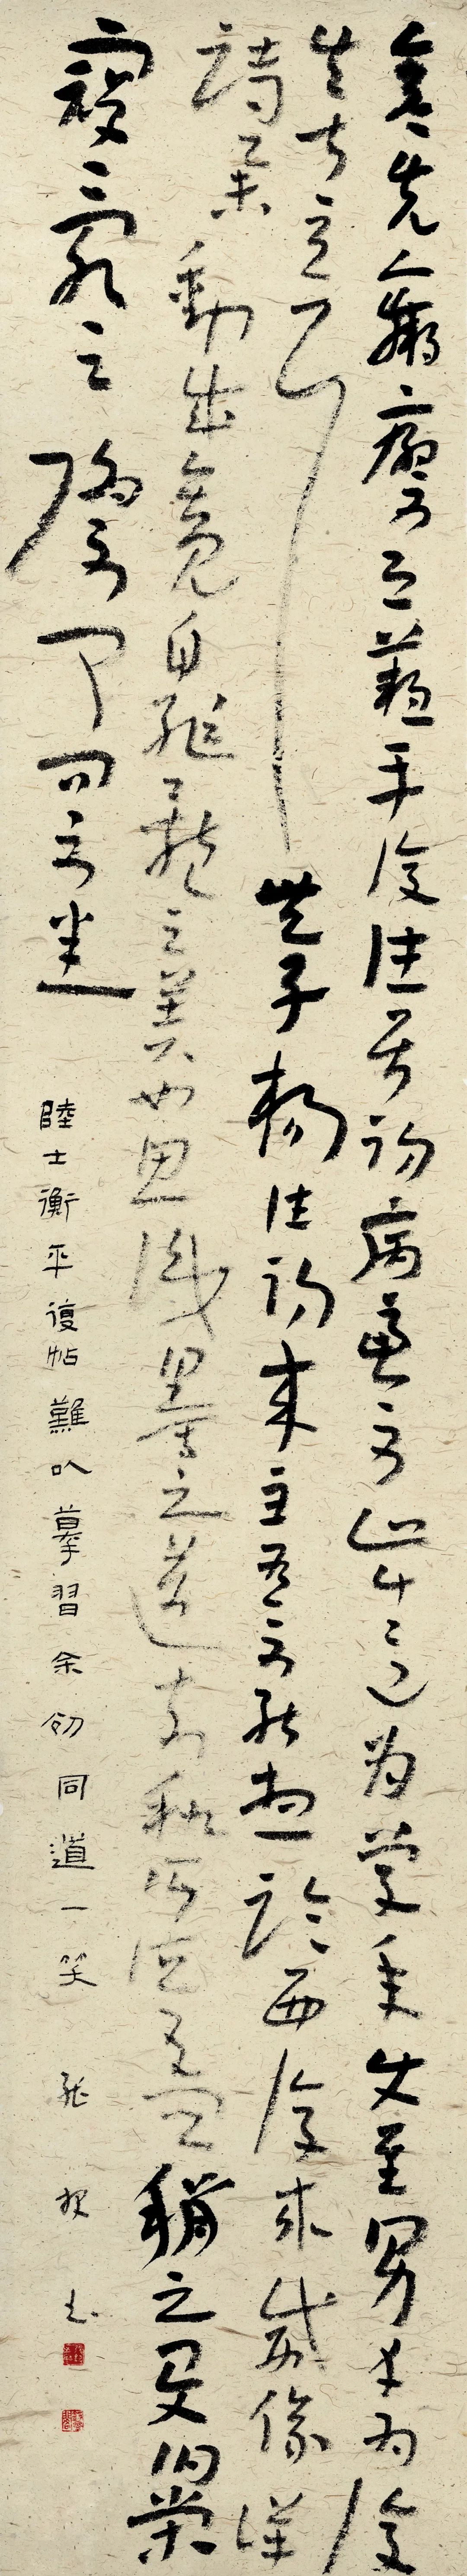 彦先羸瘵恐難平復往屬初病慮不止此此已為慶承使至男幸為復
失前憂耳吳子楊往初來主吾不能盡臨西復來威儀詳
跱舉動成觀自軀體之美也思識量之邁前執所恒有宜稱之夏伯榮
寇亂之際聞問不悉
陸士衡平復帖難以摹習余同道一笑